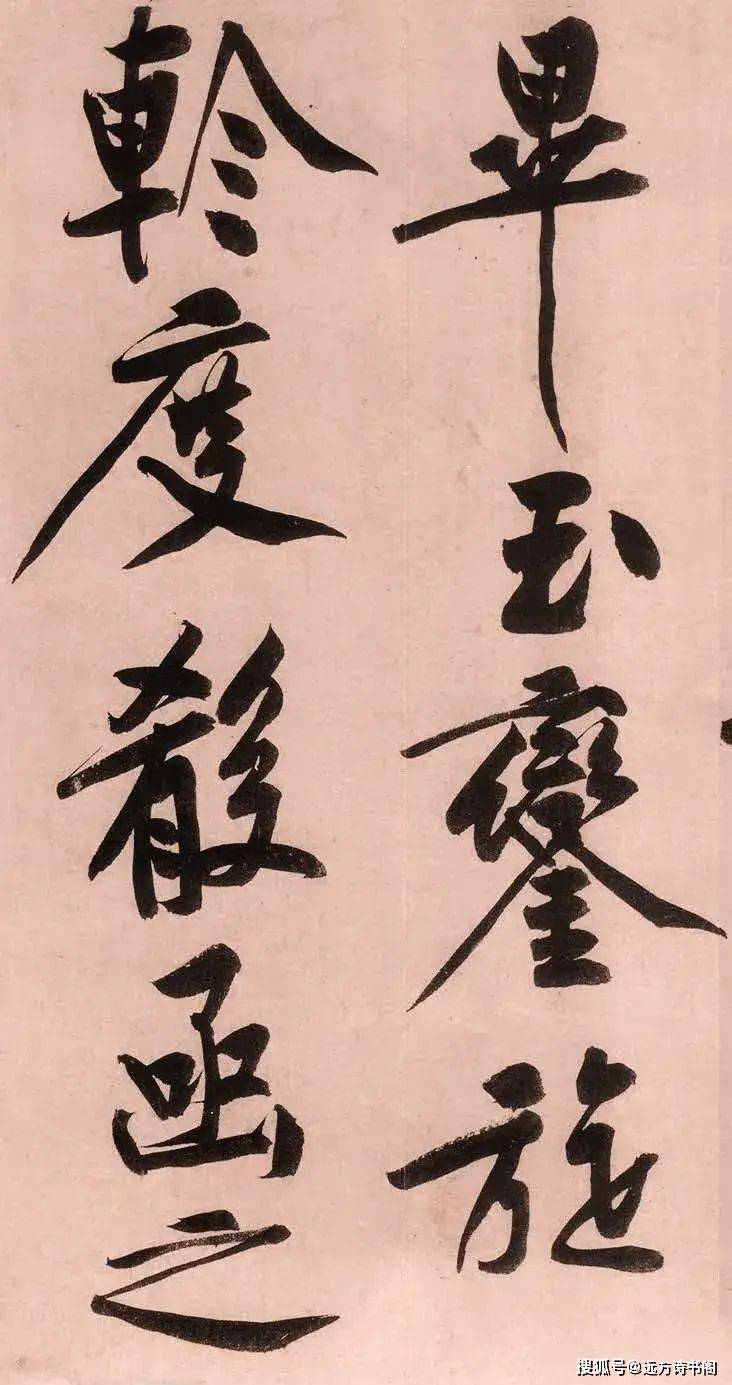 畢玉鑾旋
軫度殽函之
搜狐号@远方诗书阁